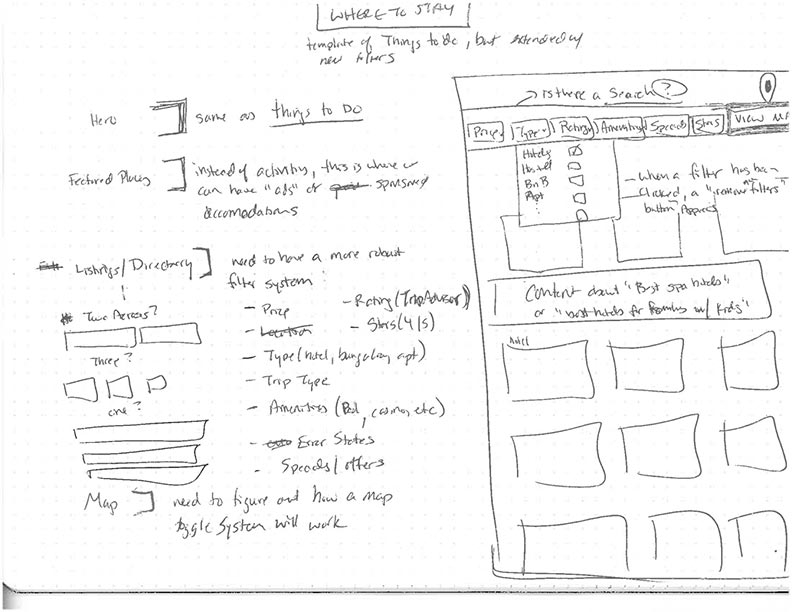 WHERE TO STAY
template of Things to do, but extended by
new filters
Hero
same as things to do
Featured Places
instead of activities, this is where we
can have "ads" or sponsored
accomodations
Listings/Directory
need to have a more robust
filter system:
Two Across?
Three?
one?
- Price
- Location
- Type (hotel, bungalow, apt)
- Trip Type
- Amenities (Pool, casino, etc)
- Error States
- Specials/offers
- Rating (TripAdvisor)
- Stars (4/5)
Map
need to figure out how a map
toggle system will work
→ is there a search?
Price
Type
Rating
Amenities
Specials
Stars
VIEW MAP
Hotels
Hostel
BnB
Apt
- when a filter has been
clicked, a "remove filters"
button appears
Content about "Best spa hotels"
or "best hotels for families w/ kids"
Hotel